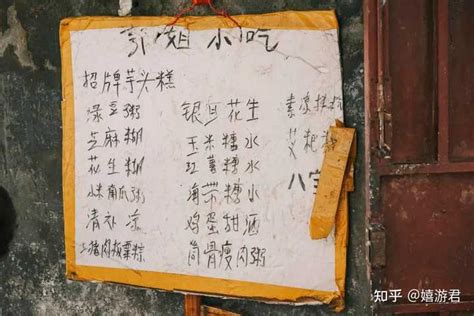 郭姐小吃
招牌芋头糕
绿豆粥
芝麻糊
花生糊
小米南瓜粥
清补凉
猪肉板栗粽
银耳花生
玉米糖水
红薯糖水
海带糖水
鸡蛋甜酒
筒骨瘦肉粥
素凉拌粉
艾粑粑
八宝
知乎 @嬉游君